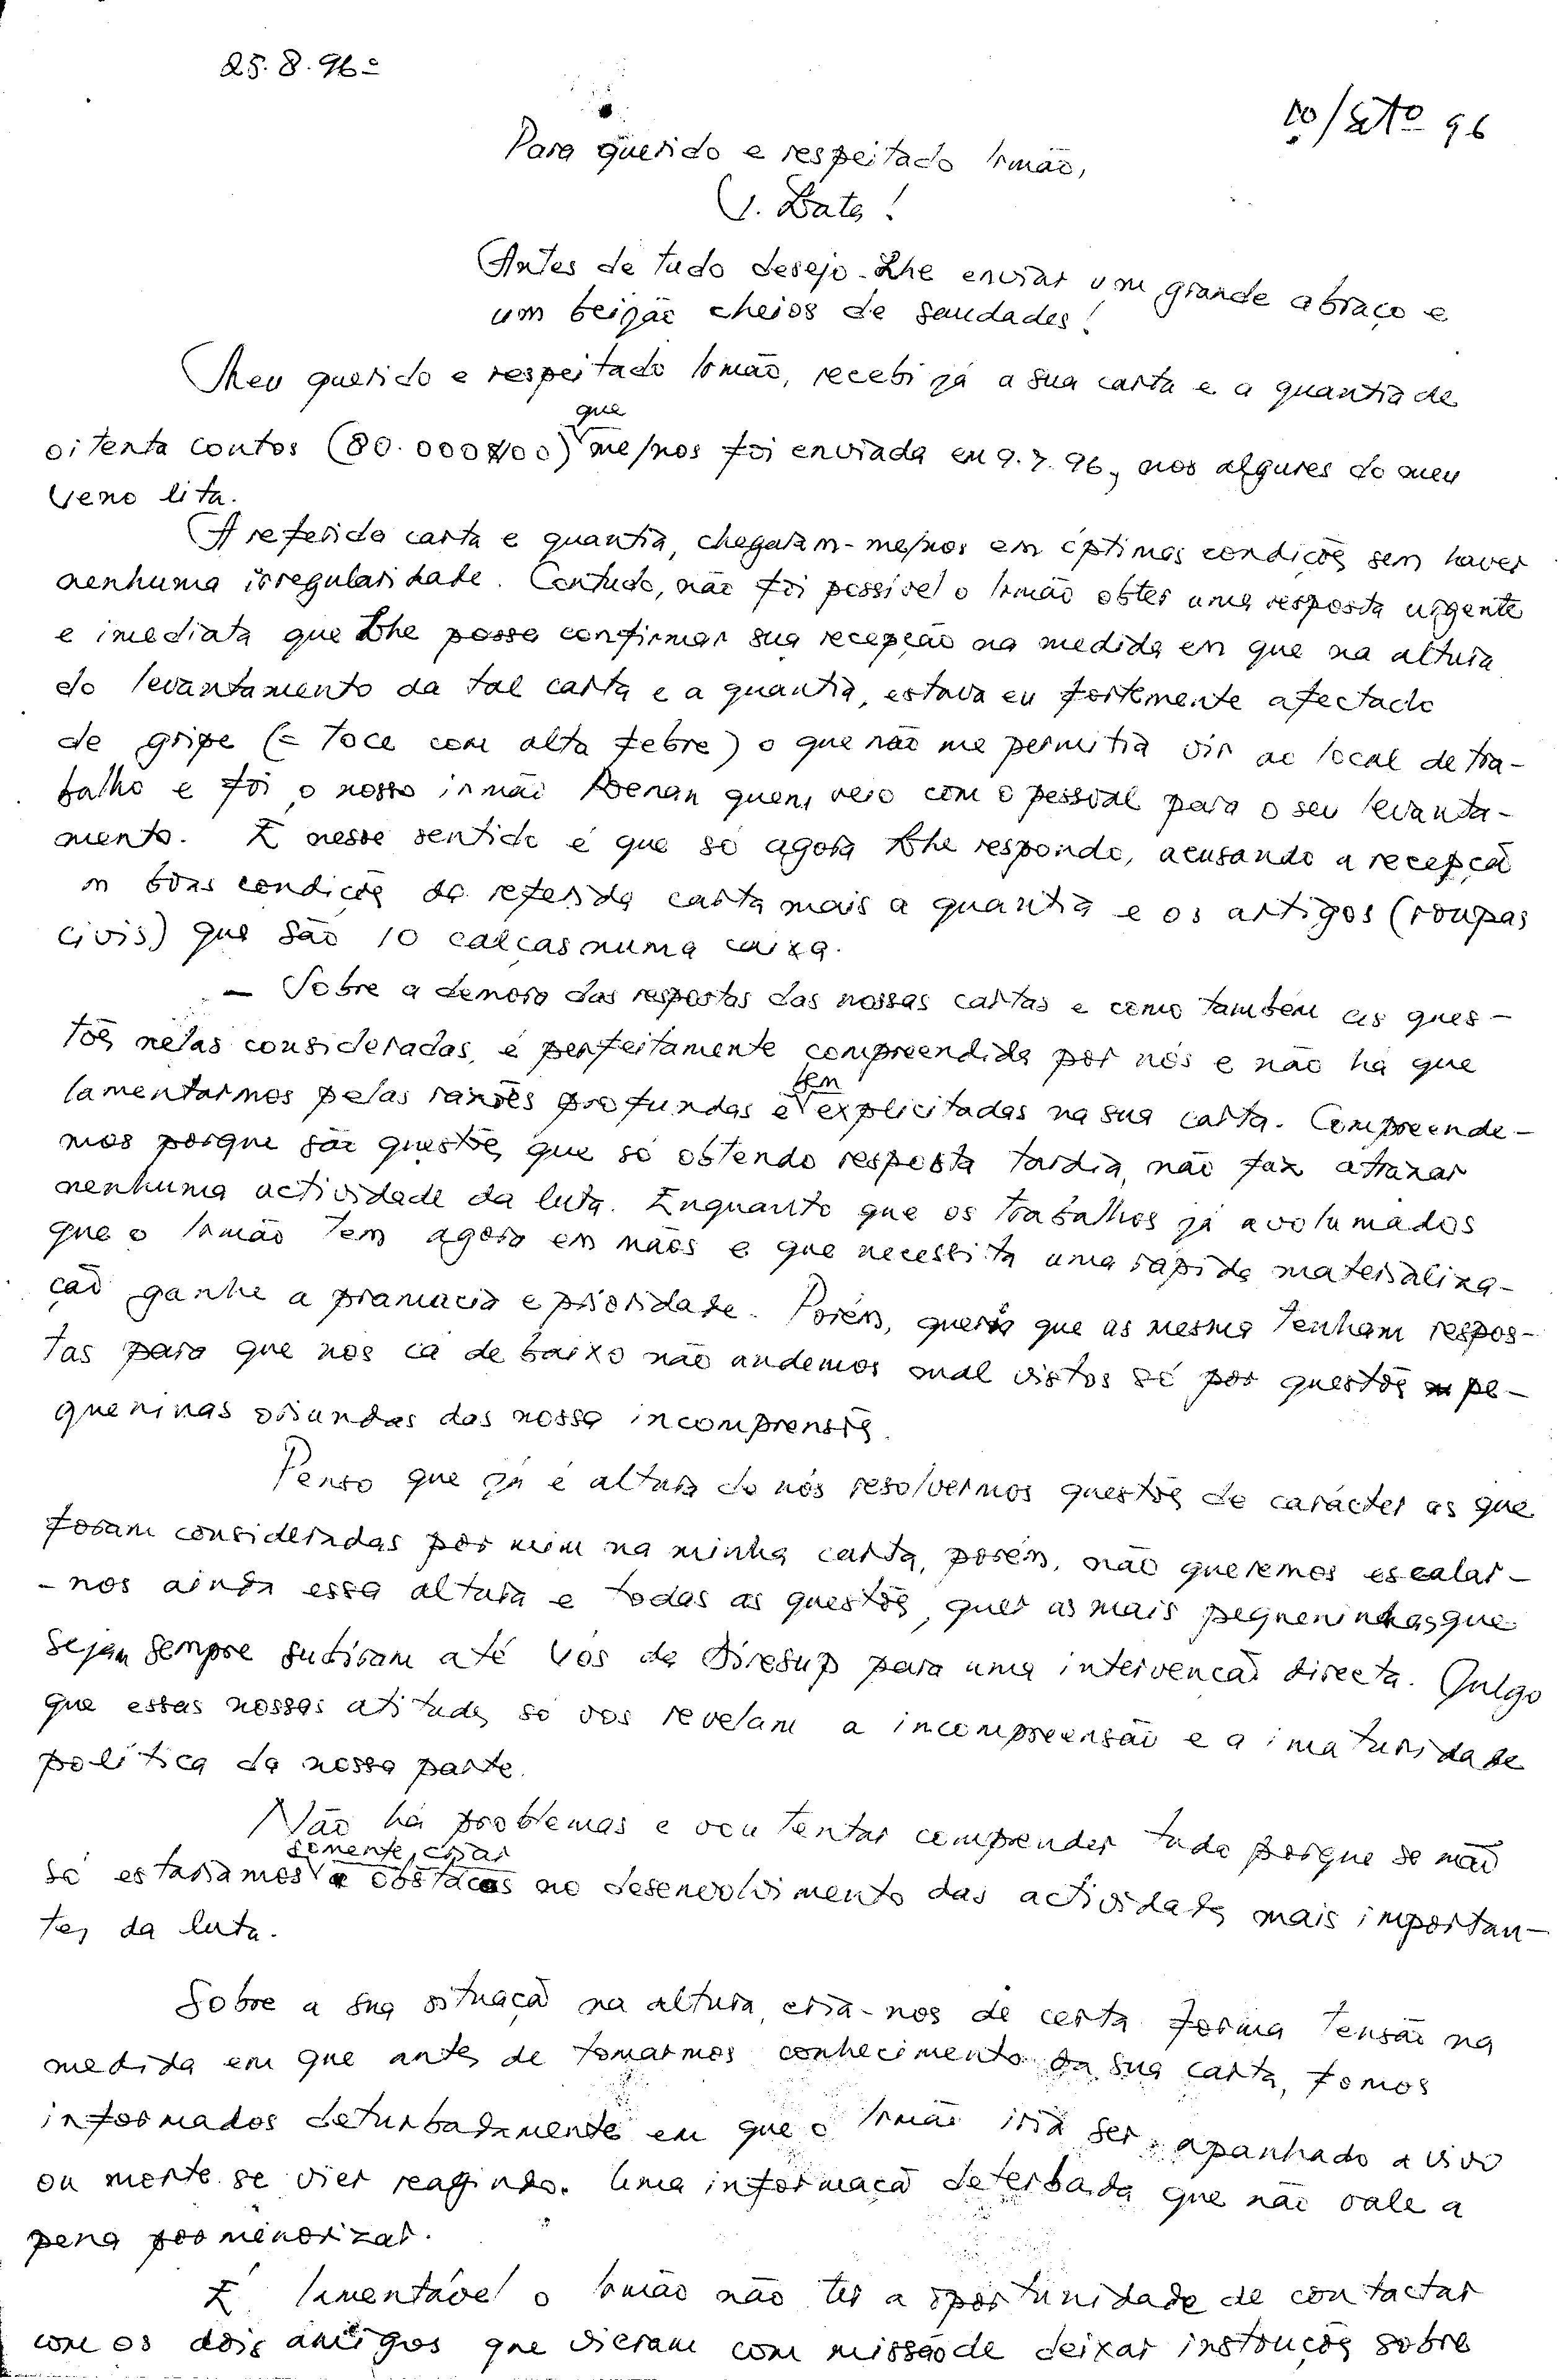 25.8.96=
10/Setº 96
Para querido e respeitado Irmão,
J. Data!
Antes de tudo desejo-Lhe enviar um grande abraço e
um beijão cheios de saudades!
Meu querido e respeitado Irmão, recebi já a sua carta e a quantia de
que
oitenta contos (80.000$00) me/nos foi enviada em 9.7.96, nos algures do meu
Veno lita.
A referida carta e quantia, chegaram-me/nos em óptimas condições sem haver
nenhuma irregularidade. Contudo, não foi possível o Irmão obter uma resposta urgente
e imediata que Lhe possa confirmar sua recepção na medida em que na altura
do levantamento da tal carta e a quantia, estava eu fortemente afectado
de gripe (= toce com alta febre) o que não me permitia vir ao local de tra-
balho e foi o nosso irmão Renan quem veio com o pessoal para o seu levanta-
mento. E nesse sentido é que só agora Lhe respondo, acusando a recepçã
m boas condições da referida carta mais a quantia e os artigos (roupas
civis) que são 10 calças numa caixa.
- Sobre a demora das respostas das nossas cartas e como também as ques-
tões nelas consideradas, é perfeitamente compreendida por nós e não há que
bem
lamentarmos pelas razões profundas e explicitadas na sua carta. Compreende-
mos porque são questões que só obtendo resposta tardia, não faz atrazar
nenhuma actividade da luta. Enquanto que os trabalhos já avolumados
que o Irmão tem agora em mãos e que necessita uma rápida materializa-
ção ganhe a pramacia e prioridade. Porém, queria que as mesma tenham respos-
tas para que nos cá de baixo não andemos mal vistos só por questões pe-
queninas oriundas das nossa incomprensões.
Penso que já é altura do nós resolvermos questões de carácter as que
foram consideradas por mim na minha carta, porém, não queremos escalar-
-nos ainda essa altura e todas as questões, quer as mais pequeninhas que
sejam sempre subiram até Vós da Diresup para uma intervençaõ directa. Julgo
que essas nossas atitudes só vos revelam a incompreensão e a imaturidade
política da nossa parte.
Não há problemas e vou tentar comprender tudo porque se não
somente, criar
só estariamos a obstácos no desenvolvimento das actividades mais importan-
tes da luta.
Sobre a sua situaçã na altura, cria-nos de certa forma tensão na
medida em que antes de tomarmos conhecimento da sua carta, fomos
informados deturbadamente em que o Irmão iria ser apanhado a vivo
ou morte se vier reagindo. Uma informaçã deterbada que não vale a
pena pormenorizar.
É lamentável o Irmão não ter a oportunidade de contactar
com os dois amigos que vieram com missão de deixar instruções sobre